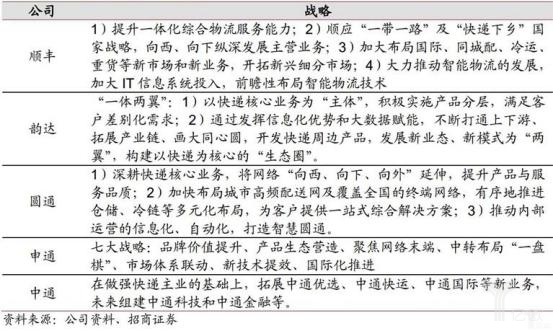 公司
战略
顺丰
1）提升一体化综合物流服务能力；2）顺应“一带一路”及“快递下乡”国
家战略，向西、向下纵深发展主营业务；3）加大布局国际、同城配、冷运、
重货等新市场和新业务，开拓新兴细分市场；4）大力推动智能物流的发展，
加大 IT 信息系统投入，前瞻性布局智能物流技术
韵达
“一体两翼”：1）以快递核心业务为“主体”，积极实施产品分层，满足客
户差别化需求；2）通过发挥信息化优势和大数据赋能，不断打通上下游、
拓展产业链、画大同心圆，开发快递周边产品，发展新业态、新模式为“两
翼”，构建以快递为核心的“生态圈”。
圆通
1）深耕快递核心业务，将网络“向西、向下、向外”延伸，提升产品与服
务品质；2）加快布局城市高频配送网及覆盖全国的终端网络，有序地推进
仓储、冷链等多元化布局，为客户提供一站式综合解决方案；3）推动内部
运营的信息化、自动化，打造智慧圆通。
申通
七大战略：品牌价值提升、产品生态营造、聚焦网络末端、中转布局“一盘
棋”、市场体系联动、新技术提效、国际化推进
中通
在做强快递主业的基础上，拓展中通优选、中通快运、中通国际等新业务，
未来组建中通科技和中通金融等。
资料来源：公司资料、招商证券